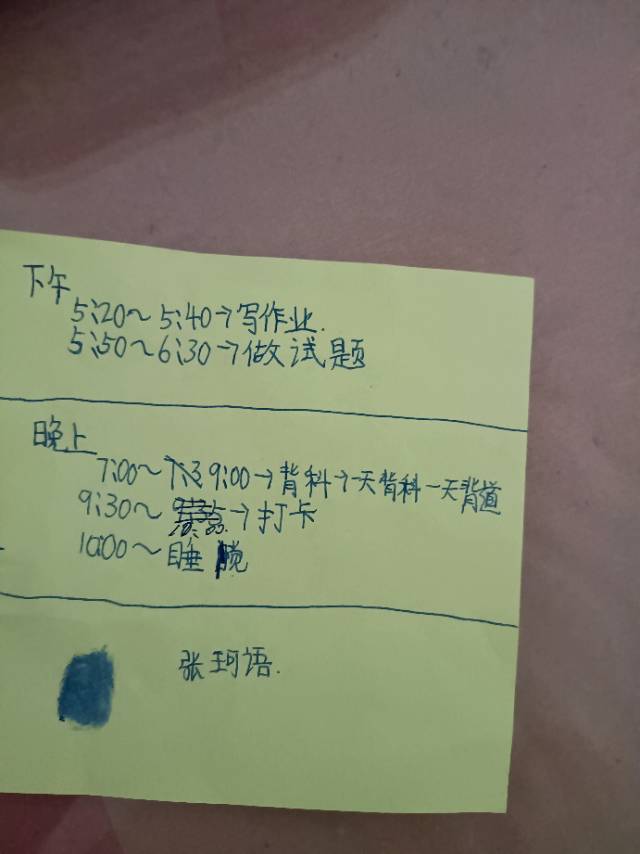 下午
5:20～5:40→写作业.
5:50～6:30→做试题
晚上
7:00～9:00→背科→一天背科一天背道
9:30～→打卡
10:00～睡觉
张珂语.